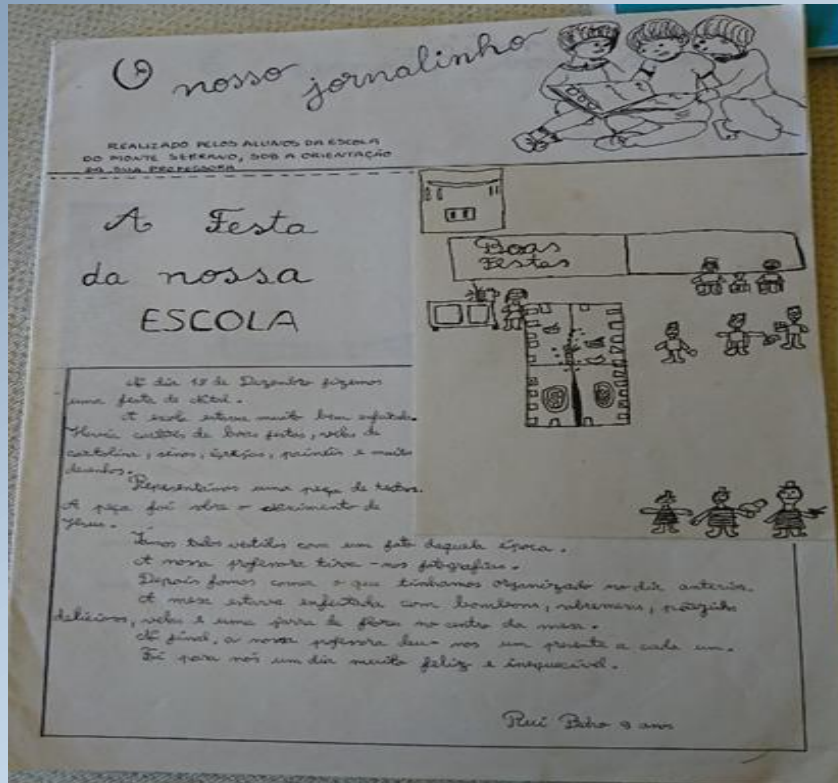 O nosso jornalinho
REALIZADO PELOS ALUNOS DA ESCOLA
DO MONTE SERRANO, SOB A ORIENTAÇÃO
DA SUA PROFESSORA
A Festa
da nossa
ESCOLA
Boas
Festas
No dia 18 de Dezembro fizemos
uma festa de Natal.
A escola estava muito bem enfeitada.
Havia cartões de boas festas, velas de
cartolina, sinos, igrejas, painéis e muitos
desenhos.
Representámos uma peça de teatro.
A peça foi sobre o nascimento de
Jesus.
Íamos todos vestidos com um fato daquela época.
A nossa professora tirou-nos fotografias.
Depois fomos comer o que tínhamos organizado no dia anterior.
A mesa estava enfeitada com bombons, sobremesas,
deliciosos, velas e uma jarra de flores no centro da mesa.
No final, a nossa professora deu-nos um presente a cada um.
Foi para nós um dia muito feliz e
Rui Pedro 9 anos